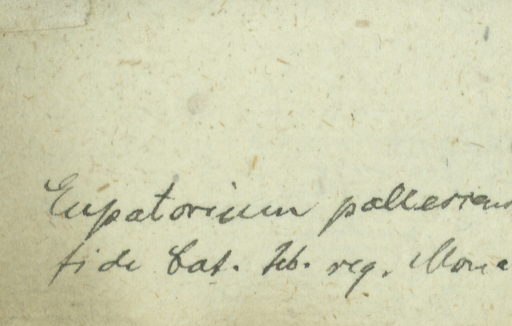 Eupatorium pallescens
fide Cat. Hb. reg. Mona